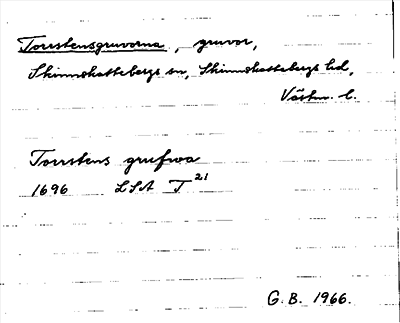 Torrstensgruvorna, gruvor,
Skinnskattebergs sn, Skinnskattebergs hd,
Västm. l.
Torrstens grufwa
1696 LSA T²¹
G.B. 1966.